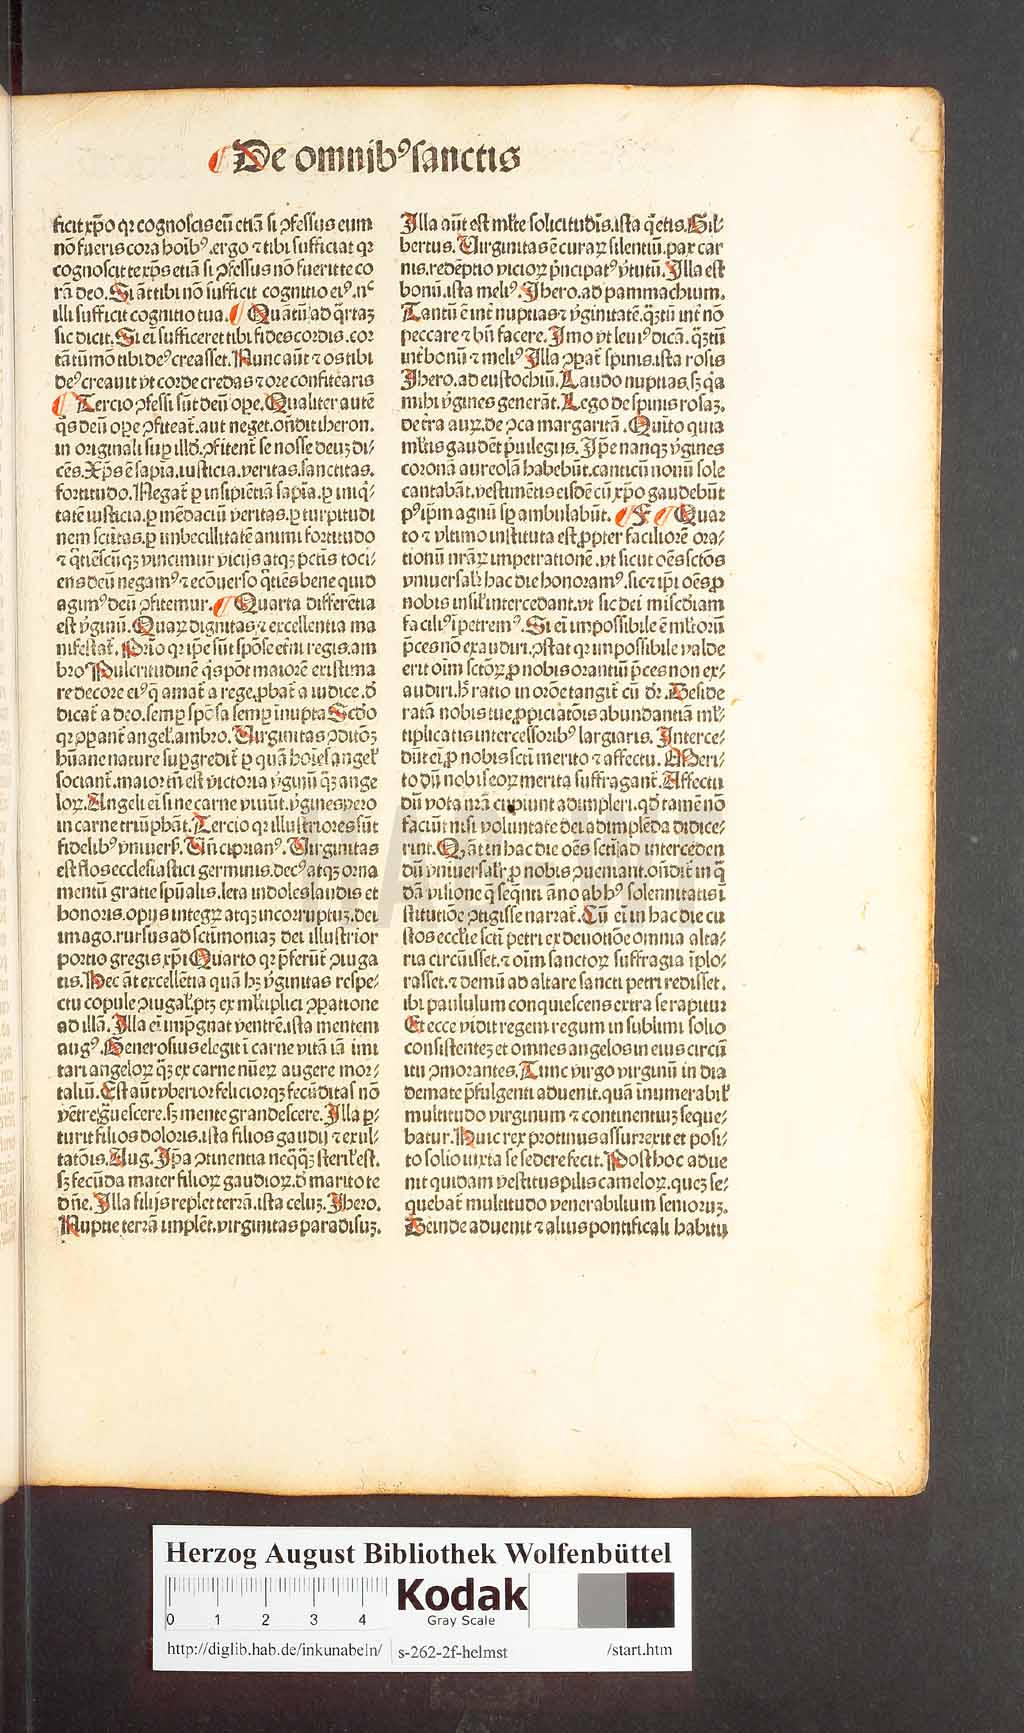 De omnibꝰ sanctis
ficit xp̄o qr cognoscis eū etiā si ꝯfessus eum
nō fueris corā hoībꝰ. ergo ⁊ tibi sufficiat qr
cognoscit te xp̄s etiā si ꝯfessus nō fuerit te co
rā deo. Si āt tibi nō sufficit cognitio eiꝰ. nec
illi sufficit cognitio tua. Quātū ad q̈rtaꝫ
sic dicit. Si ei sufficeret tibi fides cordis. cor
tātūmō tibi deꝰ creasset. Nunc aūt ⁊ os tibi
deꝰ creauit vt corde credas ⁊ ore confitearis
Tercio ꝯfessi sūt deū oꝑe. Qualiter autē
q̇s deū oꝑe ꝯfiteat̄. aut neget. ondit iheron.
in originali suꝑ illd̄. ꝯfitent̄ se nosse deuꝫ di⸗
cēs. Xp̄s ē sapīa. iusticia. veritas. sanctitas.
fortitudo. Negat̄ ꝑ insipiētiā sapīa. ꝑ iniq̇⸗
tatē iusticia. ꝑ mēdaciū veritas. ꝑ turpitudi
nem sctītas. ꝑ imbecillitatē animi fortitudo
⁊ q̈tiēscūqꝫ vincimur vicijs atqꝫ pctīs toci⸗
ens deū negamꝰ ⁊ econuerso q̈tiēs bene quid
agimꝰ deū ꝯfitemur. Quarta differētia
est v̇ginū. Quaꝝ dignitas ⁊ excellentia ma
nifestat̄. Prīo qr ip̄e sūt spōse etīni regis. am
bro Pulcritudinē q̇s pōt maiorē existima
re decore eiꝰ q̄ amat̄ a rege. ꝓbat̄ a iudice. d̄
dicat̄ a deo. semꝑ spōsa semꝑ īnupta Scdo
qr ꝯꝑant̄ angel̓. ambro. Virginitas ꝯditōꝫ
hūane nature suꝑgredit̄ ꝑ quā hoīes angel̓
sociant̄. maior tn̄ est victoria v̇ginū qꝫ ange
loꝝ. Angeli ei sine carne viuūt. v̇gines vero
in carne triūphāt. Tercio qr illustriores sūt
fidelibꝰ vniuers̓. Vn̄ cipriaꝰ. Virginitas
est flos ecclesiastici germinis. decꝰ atqꝫ orna
mentū gratie spūalis. leta indoles laudis et
honoris. opus integrꝫ atqꝫ incorruptuꝫ. dei
imago. rursus ad sctīmoniaꝫ dei illustrior
portio gregis xp̄i Quarto qr p̄ferūt̄ ꝯiuga
tis. Hec āt excellētia quā hꝫ v̇ginitas respe⸗
ctu copule ꝯiugal̓. ptꝫ ex ml̓tiplici ꝯꝑatione
ad illā. Illa ei imp̄gnat ventrē. ista mentem
augꝰ. Generosius elegit ī carne vitā iā imi
tari angeloꝝ qꝫ ex carne nūeꝝ augere mor⸗
taliū. Est aūt vberior feliciorqꝫ fecūditas nō
vētre gͣuescere. sꝫ mente grandescere. Illa ꝑ⸗
turit filios doloris. ista filios gaudij ⁊ exul⸗
tatōis. Aug. Ip̄a ꝯtinentia neq̄q̈ꝫ steril̓ est.
sꝫ fecūda mater filioꝝ gaudioꝝ. d̄ marito te
dn̄e. Illa filijs replet terrā. ista celuꝫ. Ihero.
Nuptie terrā implēt. virginitas paradisuꝫ.
Illa aūt est ml̓te solicitudīs. ista q̇etis. Gil⸗
bertus. Virginitas ē curaꝝ silentiū. pax car
nis. redēptio vicioꝝ p̄ncipatꝰ v̇tutū. Illa est
bonū. ista meliꝰ. Ihero. ad pammachium.
Tantū ē int̄ nuptias ⁊ v̇ginitatē. qꝫtū int̄ nō
peccare ⁊ bn̄ facere. Imo vt leuiꝰ dicā. qꝫtū
int̄ bonū ⁊ meliꝰ Illa ꝯꝑat̄ spinis. ista rosis
Ihero. ad eustochiū. Laudo nuptias. sꝫ q̇a
mihi v̇gines generāt. Lego de spinis rosaꝫ.
de tr̄a auꝝ. de ꝯca margaritā. Quīto quia
ml̓tis gaudēt ṗuilegijs. Ip̄e nanqꝫ v̇gines
coronā aureolā habebūt. canticū nouū sole
cantabāt. vestimētis eisdē cū xp̄o gaudebūt
pꝰ ip̄m agnū sꝑ ambulabūt. F Quar
to ⁊ vltimo instituta est ꝓpter faciliorē ora⸗
tionū nr̄aꝝ impetrationē. vt sicut oēs sctōs
vniuersalr̄ hac die honoramꝰ. sic ⁊ ip̄i oēs ꝓ
nobis insil̓ intercedant. vt sic dei miscḋiam
faciliꝰ īpetremꝰ. Si ei impossibile ē ml̓torū
p̄ces nō exaudiri. ꝯstat qr impossibile valde
erit oīm sctōꝝ ꝓ nobis orantiū p̄ces non ex⸗
audiri. h̄ ratio in orōe tangit̄ cū dr̄. Deside
ratā nobis tue ꝓpiciatōis abundantiā ml̓⸗
tiplicatis intercessoribꝰ largiaris. Interce⸗
dūt ei ꝓ nobis scti merito ⁊ affectu. Meri⸗
to dū nobis eoꝝ merita suffragant̄. Affectu
dū vota nr̄a cupiunt adimpleri. qd̄ tamē nō
faciūt nisi voluntatē dei adimplēdā didice⸗
rint. Qd̄ āt in hac die oēs scti ad interceden
dū vniuersalr̄ ꝓ nobis ꝯueniant. ondit̄ in q̄
dā visione q̄ seq̄nti āno ab hꝰ solennitatis ī
stitutiōe ꝯtigisse narrat̄. Cū ei in hac die cu
stos eccl̓ie scti petri ex deuotiōe omnia alta⸗
ria circūisset. ⁊ oīm sanctoꝝ suffragia īplo⸗
rasset. ⁊ demū ad altare sancti petri redisset.
ibi paululum conquiescens extra se rapitur
Et ecce vidit regem regum in sublimi solio
consistenteꝫ et omnes angelos in eius circū
itu ꝯmorantes. Tunc virgo virginū in dia
demate p̄fulgenti aduenit. quā īnumerabil̓
multitudo virginum ⁊ continentiuꝫ seque⸗
batur. Huic rex protinus assurrexit et posi⸗
to solio iuxta se sedere fecit. Post hoc adue
nit quidam vestitus pilis cameloꝝ. queꝫ se⸗
quebat̄ multitudo venerabilium senioruꝫ.
Deinde aduenit ⁊ alius pontificali habitu
Herzog August Bibliothek Wolfenbüttel
0 1 2 3 4
Kodak
Gray Scale
http://diglib.hab.de/inkunabeln/ s-262-2f-helmst /start.htm